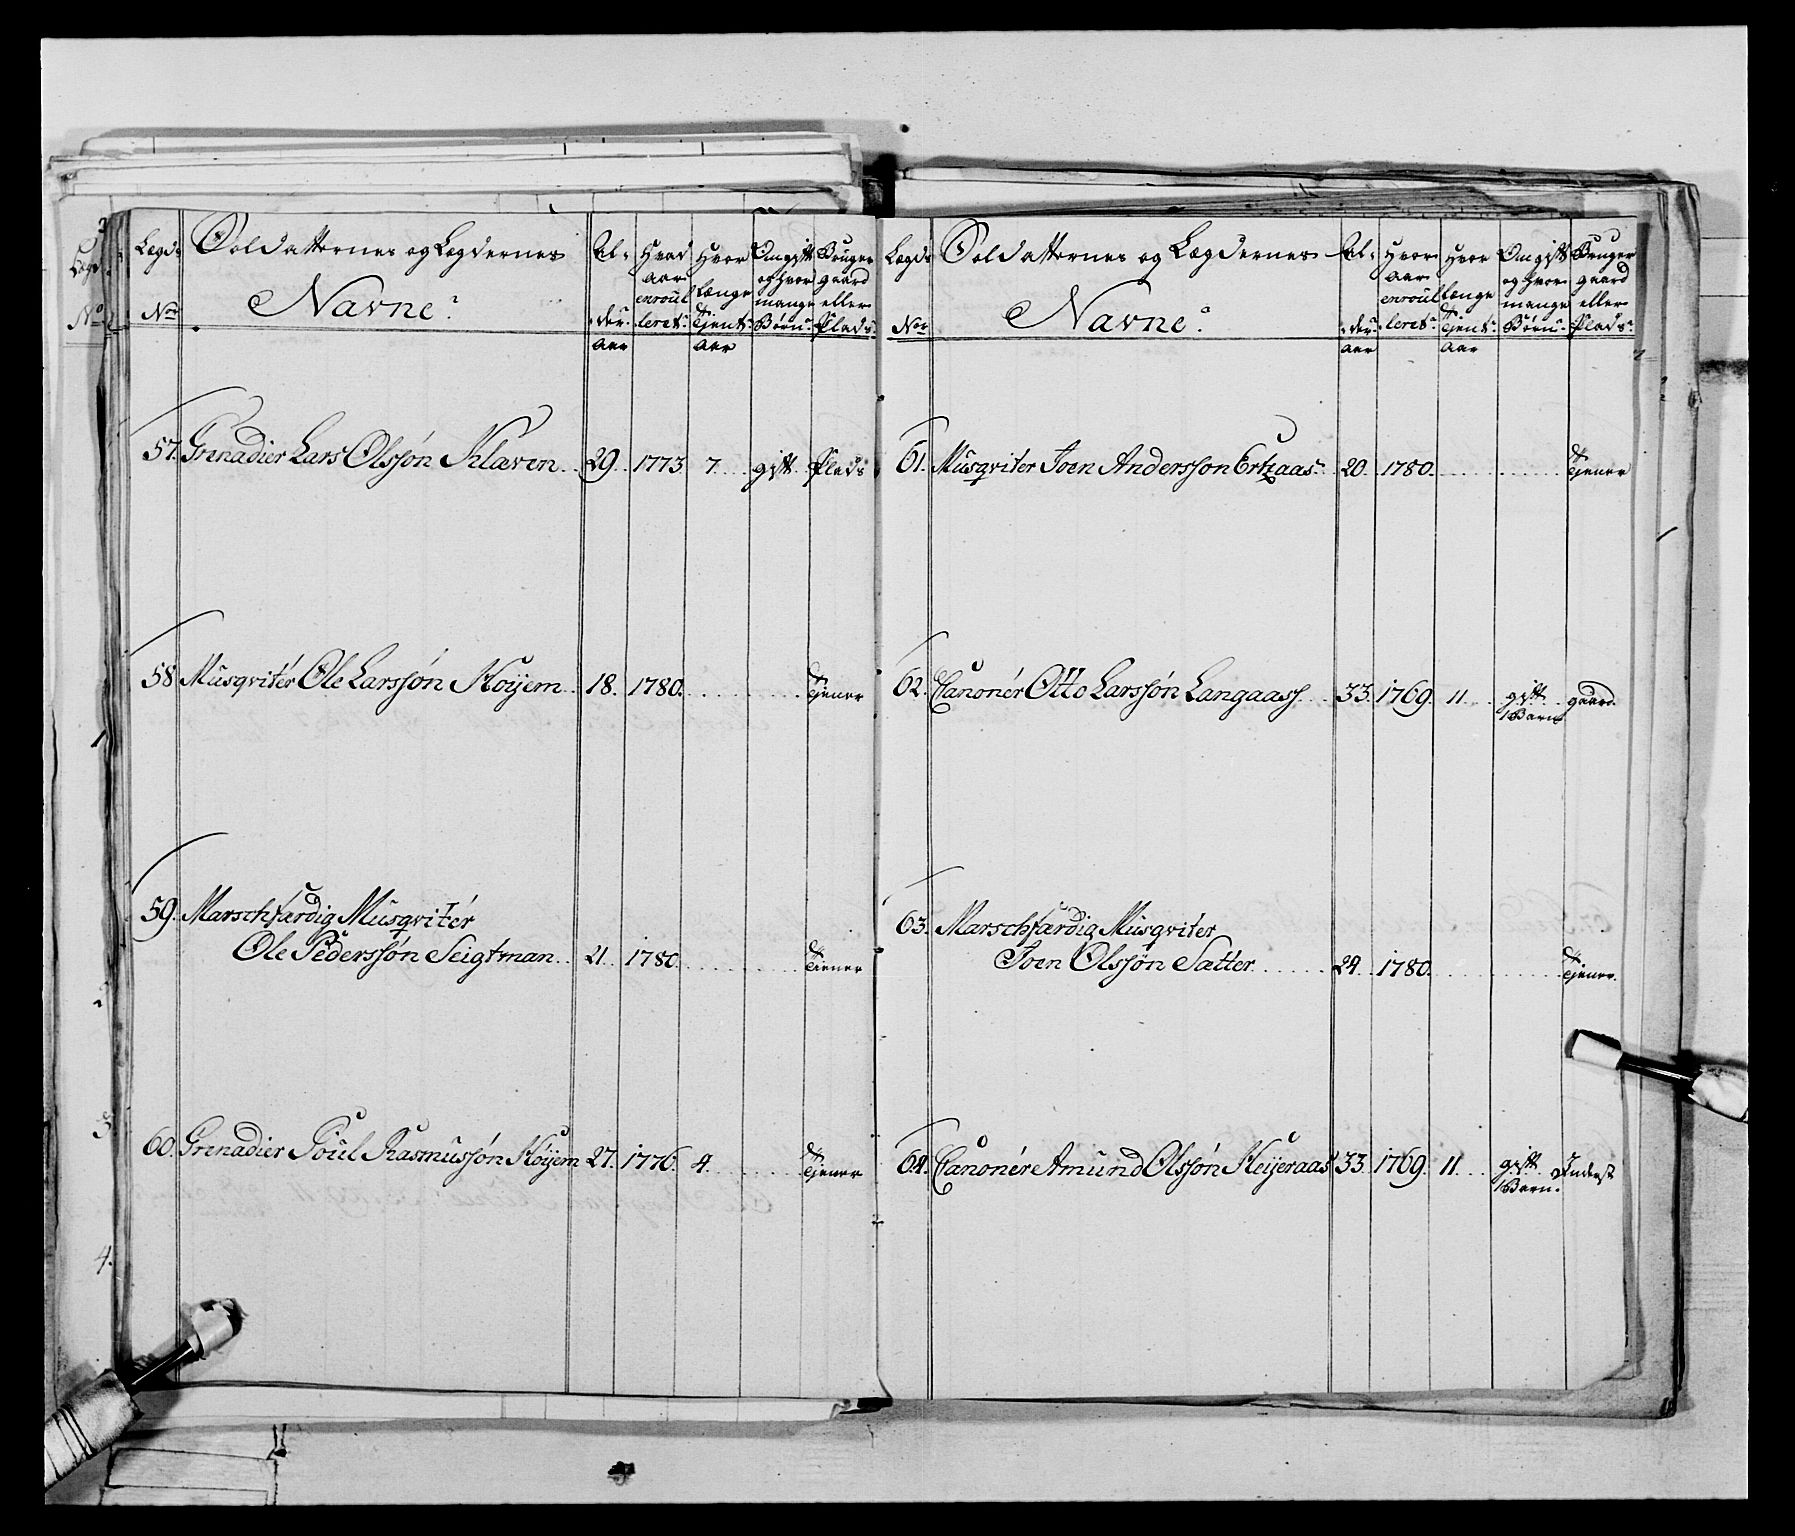 Lægds No Soldatternes og Lægdernes Navne. Al-der. aar Hvad aar enroulleret. Hvor længe tient. aar Om gift og hvor mange Børn. Bruger gaard eller Plads.
57. Grenadier Lars Olssøn Klæven 29. 1773. 7. gift. Plads
58. Musqvitér Ole Larssøn Høÿem 18. 1780. Tjener
59. Marschfærdig Musqvitér
Ole Pederssøn Seigtman 21. 1780. Tiener
60. Grenadier Poul Rasmussøn Høÿem 27. 1776. 4. Tjener
Lægds Nor Soldatternes og Lægdernes Navne. Al-der. aar Hvor aar enroulleret. Hvor længe tjent. aar Om gift og hvor mange Børn. Bruger gaard eller Plads.
61. Musqviter Joen Anderssøn 20. 1780. Tjener
62. Canonér Otto Larssøn Langaass 33. 1769. 11. gift. 1 Barn gaard.
63. Marschfærdig Musqviter
Joen Olssøn Sætter 24. 1780. Tjener.
64. Canonér Amund Olssøn Heÿeraas 33. 1769. 11. gift. 1 Barn. Inderst